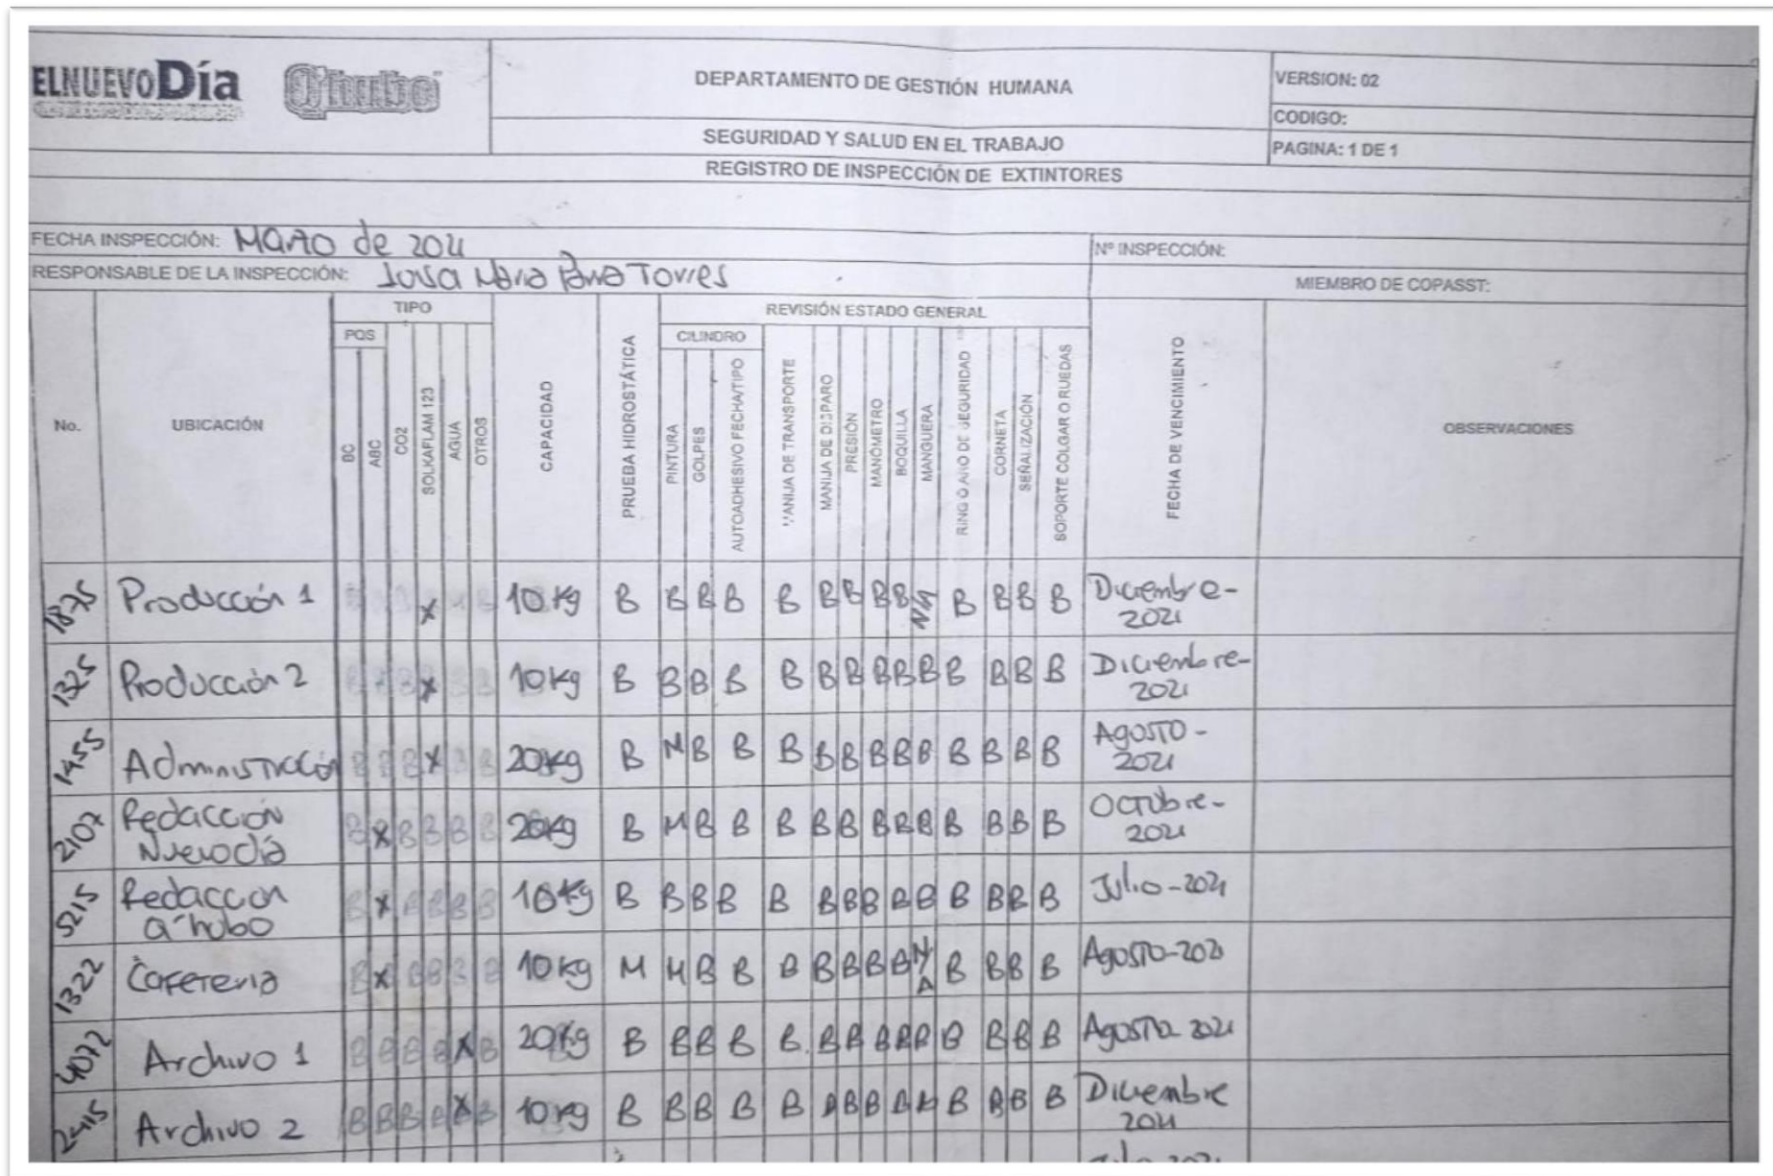 ELNUEVODía
Q'hubo
DEPARTAMENTO DE GESTIÓN HUMANA
VERSION: 02
CODIGO:
SEGURIDAD Y SALUD EN EL TRABAJO
PAGINA: 1 DE 1
REGISTRO DE INSPECCIÓN DE EXTINTORES
FECHA INSPECCIÓN: Marzo de 2021
Nº INSPECCIÓN:
RESPONSABLE DE LA INSPECCIÓN: Maria Torres
MIEMBRO DE COPASST:
No.
UBICACIÓN
TIPO
PQS
BC
ABC
CO2
SOLKAFLAM 123
AGUA
OTROS
CAPACIDAD
PRUEBA HIDROSTÁTICA
REVISIÓN ESTADO GENERAL
CILINDRO
PINTURA
GOLPES
AUTOADHESIVO FECHA/TIPO
MANIJA DE TRANSPORTE
MANIJA DE DISPARO
PRESIÓN
MANÓMETRO
BOQUILLA
MANGUERA
RING O ANO DE SEGURIDAD
CORNETA
SEÑALIZACIÓN
SOPORTE COLGAR O RUEDAS
FECHA DE VENCIMIENTO
OBSERVACIONES
1875 Producción 1 x 10 kg B B B B B B B B B NA B B B B Diciembre-
2021
1325 Producción 2 x 10 kg B B B B B B B B B B B B B B Diciembre-
2021
1455 Administracción x 20 kg B M B B B B B B B B B B B B Agosto-
2021
2107 Redacción
Nuevo día x 20 kg B M B B B B B B B B B B B B Octubre-
2021
5215 Redaccion
Q'hubo x 10 kg B B B B B B B B B B B B B B Julio-2021
1322 Cafeteria x 10 kg M M B B B B B B B N/A B B B B Agosto-202
4072 Archivo 1 x 20 kg B B B B B B B B B B B B B B Agosto 2021
2415 Archivo 2 x 10 kg B B B B B B B B B B B B B Diciembre
2021